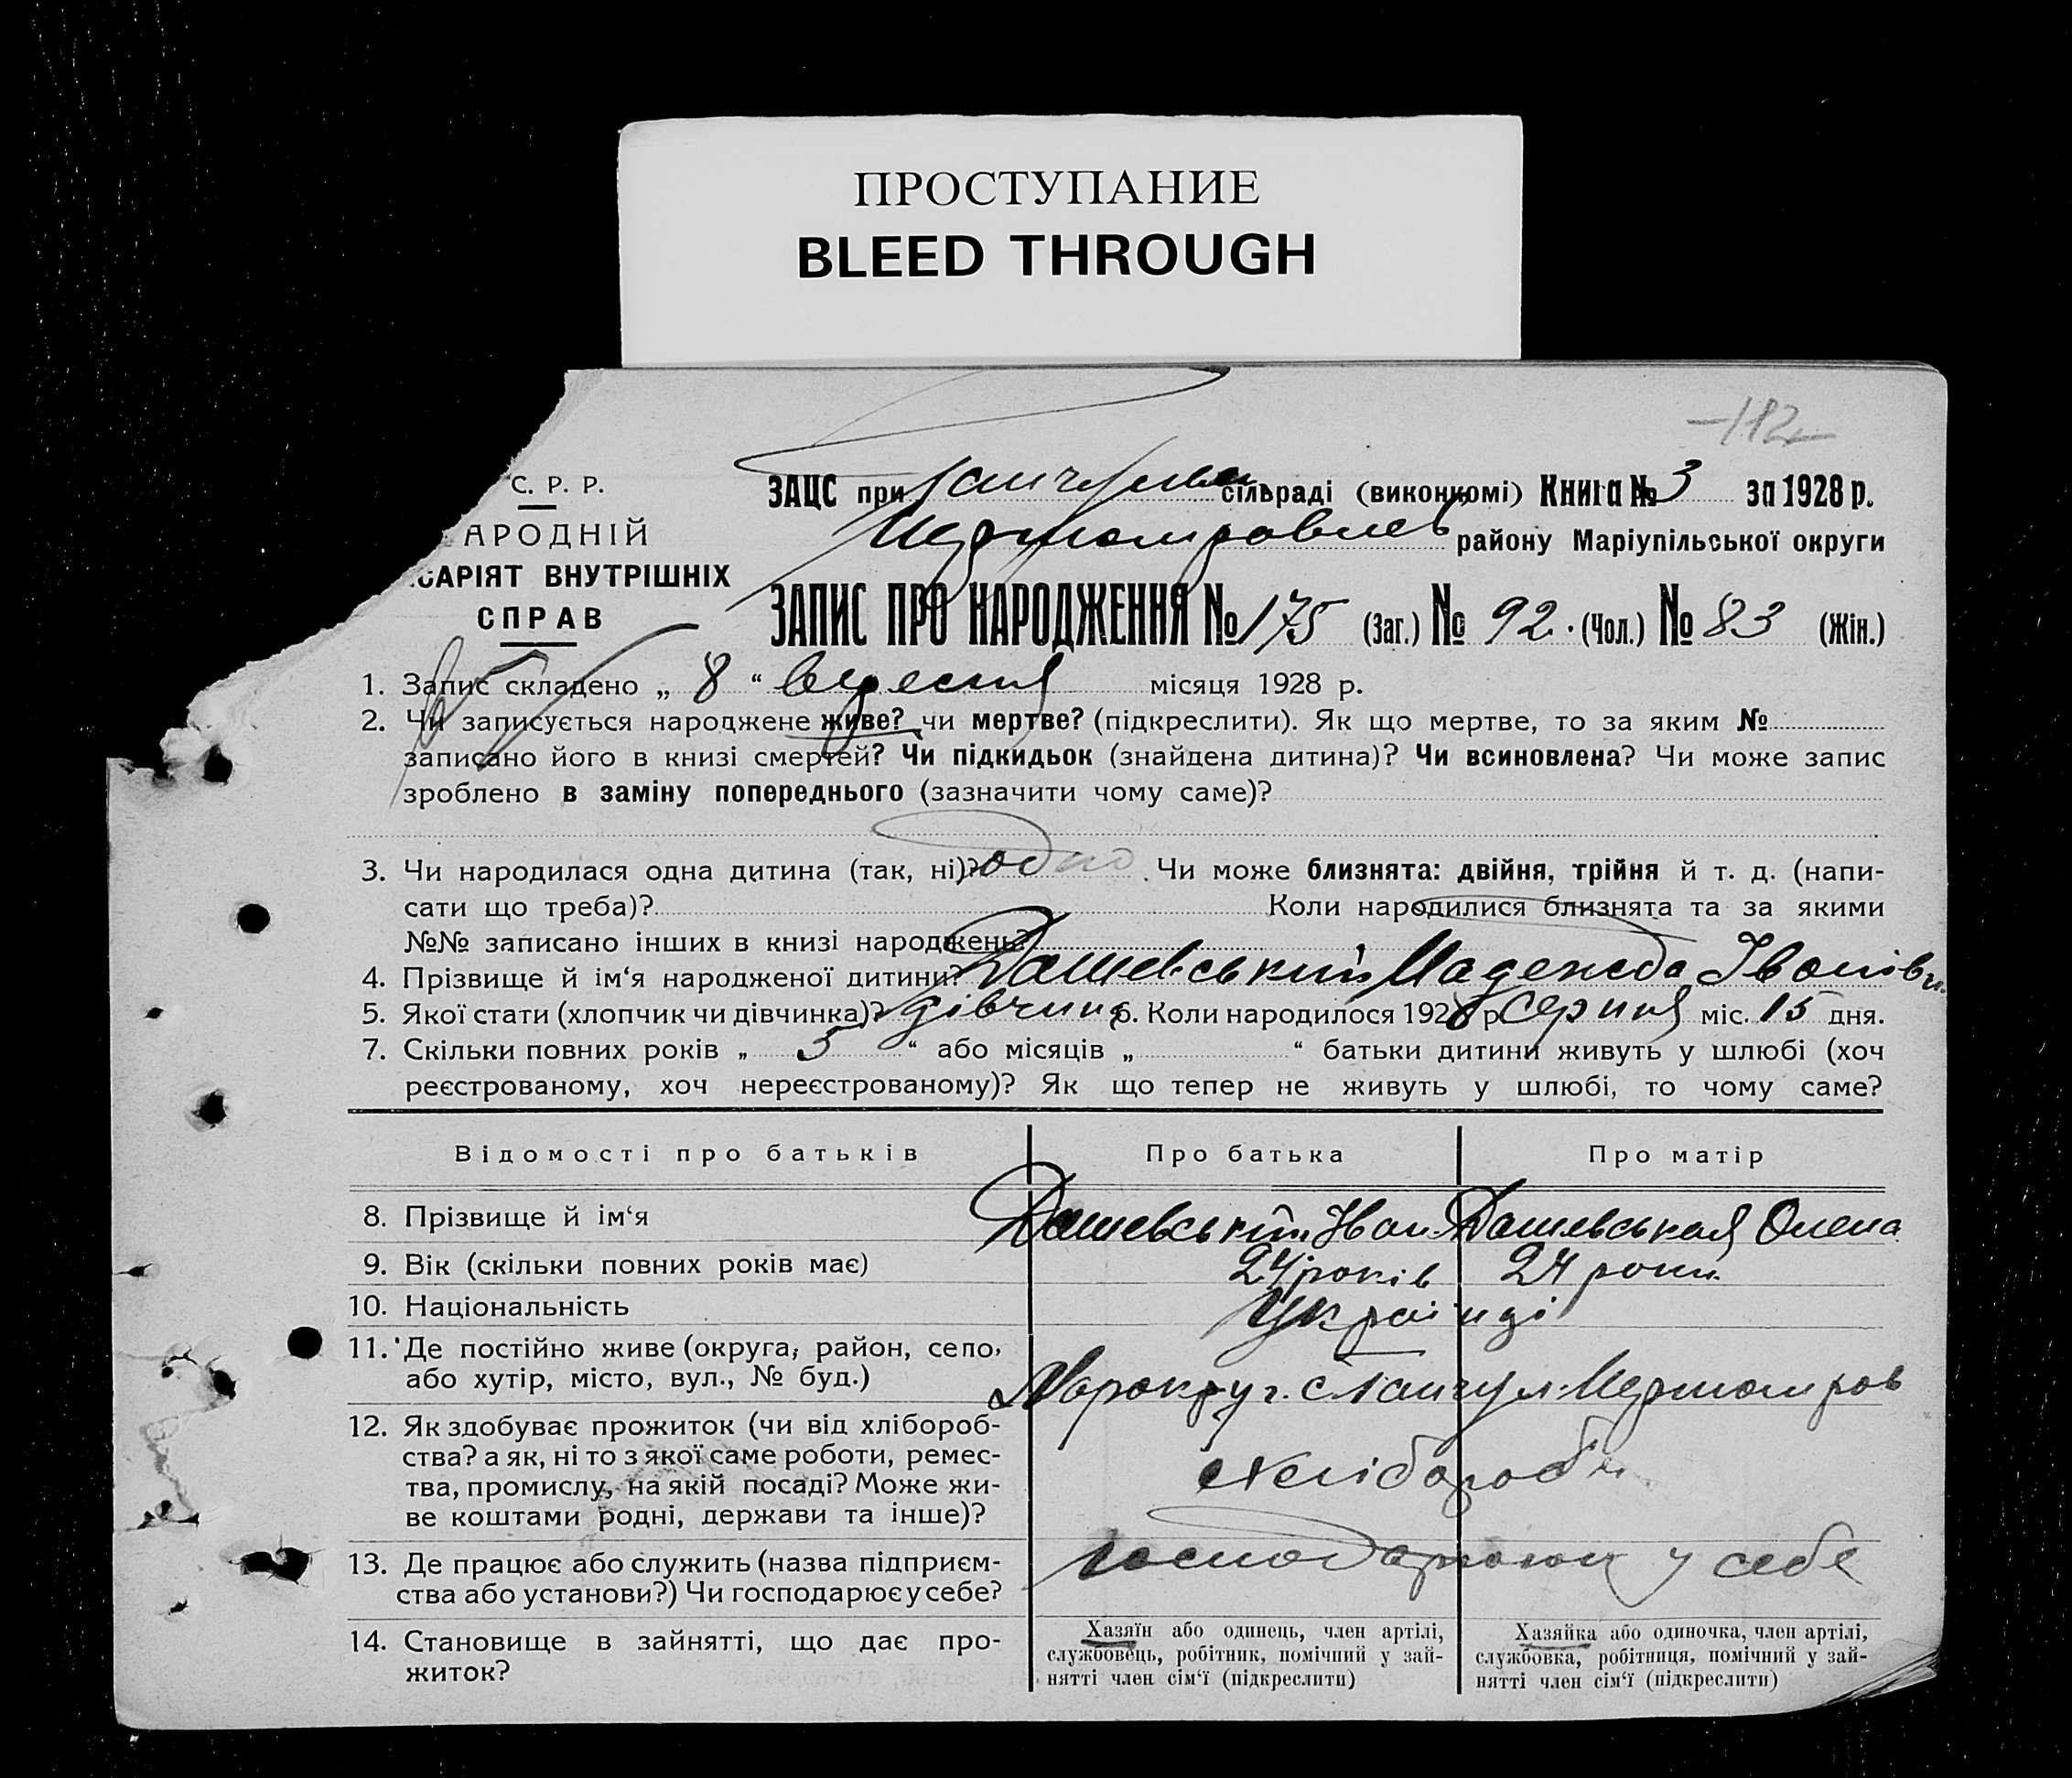 ПРОСТУПАНИЕ
BLEED THROUGH
-182-
С. Р. Р.
АРОДНІЙ
САРІЯТ ВНУТРІШНІХ
СПРАВ
ЗАЦС при сільраді (виконкомі) Книга № 3 за 1928 р.
району Маріупільської округи
ЗАПИС ПРО НАРОДЖЕННЯ № 175 (Заг.) № 92. (Чол.) № 83 (Жін.)
1. Запис складено „ 8 “ вересня місяця 1928 р.
2. Чи записується народжене живе? чи мертве? (підкреслити). Як що мертве, то за яким №
записано його в книзі смертей? Чи підкидьок (знайдена дитина)? Чи всиновлена? Чи може запис
зроблено в заміну попереднього (зазначити чому саме)?
3. Чи народилася одна дитина (так, ні)? одно . Чи може близнята: двійня, трійня й т. д. (напи-
сати що треба)? Коли народилися близнята та за якими
№№ записано інших в книзі народжень?
4. Прізвище й ім‘я народженої дитини? Дашевський Надежда Іванівн
5. Якої стати (хлопчик чи дівчинка)? дівчина 6. Коли народилося 1928 р серпня міс. 15 дня.
7. Скільки повних років „ 5 “ або місяців „ “ батьки дитини живуть у шлюбі (хоч
реєстрованому, хоч нереєстрованому)? Як що тепер не живуть у шлюбі, то чому саме?
Відомості про батьків Про батька Про матір
8. Прізвище й ім‘я Дашевський Іван Дашевськая Олена
9. Вік (скільки повних років має) 24 років 24 роки
10. Національність Українці
11. Де постійно живе (округа, район, село,
або хутір, місто, вул., № буд.)
12. Як здобуває прожиток (чи від хлібороб-
ства? а як, ні то з якої саме роботи, ремес-
тва, промислу, на якій посаді? Може жи-
ве коштами родні, держави та інше)?
хлібороби
13. Де працює або служить (назва підприєм-
ства або установи?) Чи господарює у себе?
господарюют у себе
14. Становище в зайнятті, що дає про-
житок?
Хазяїн або одинець, член артілі,
службовець, робітник, помічний у зай-
нятті член сім‘ї (підкреслити)
Хазяйка або одиночка, член артілі,
службовка, робітниця, помічний у зай-
нятті член сім‘ї (підкреслити)